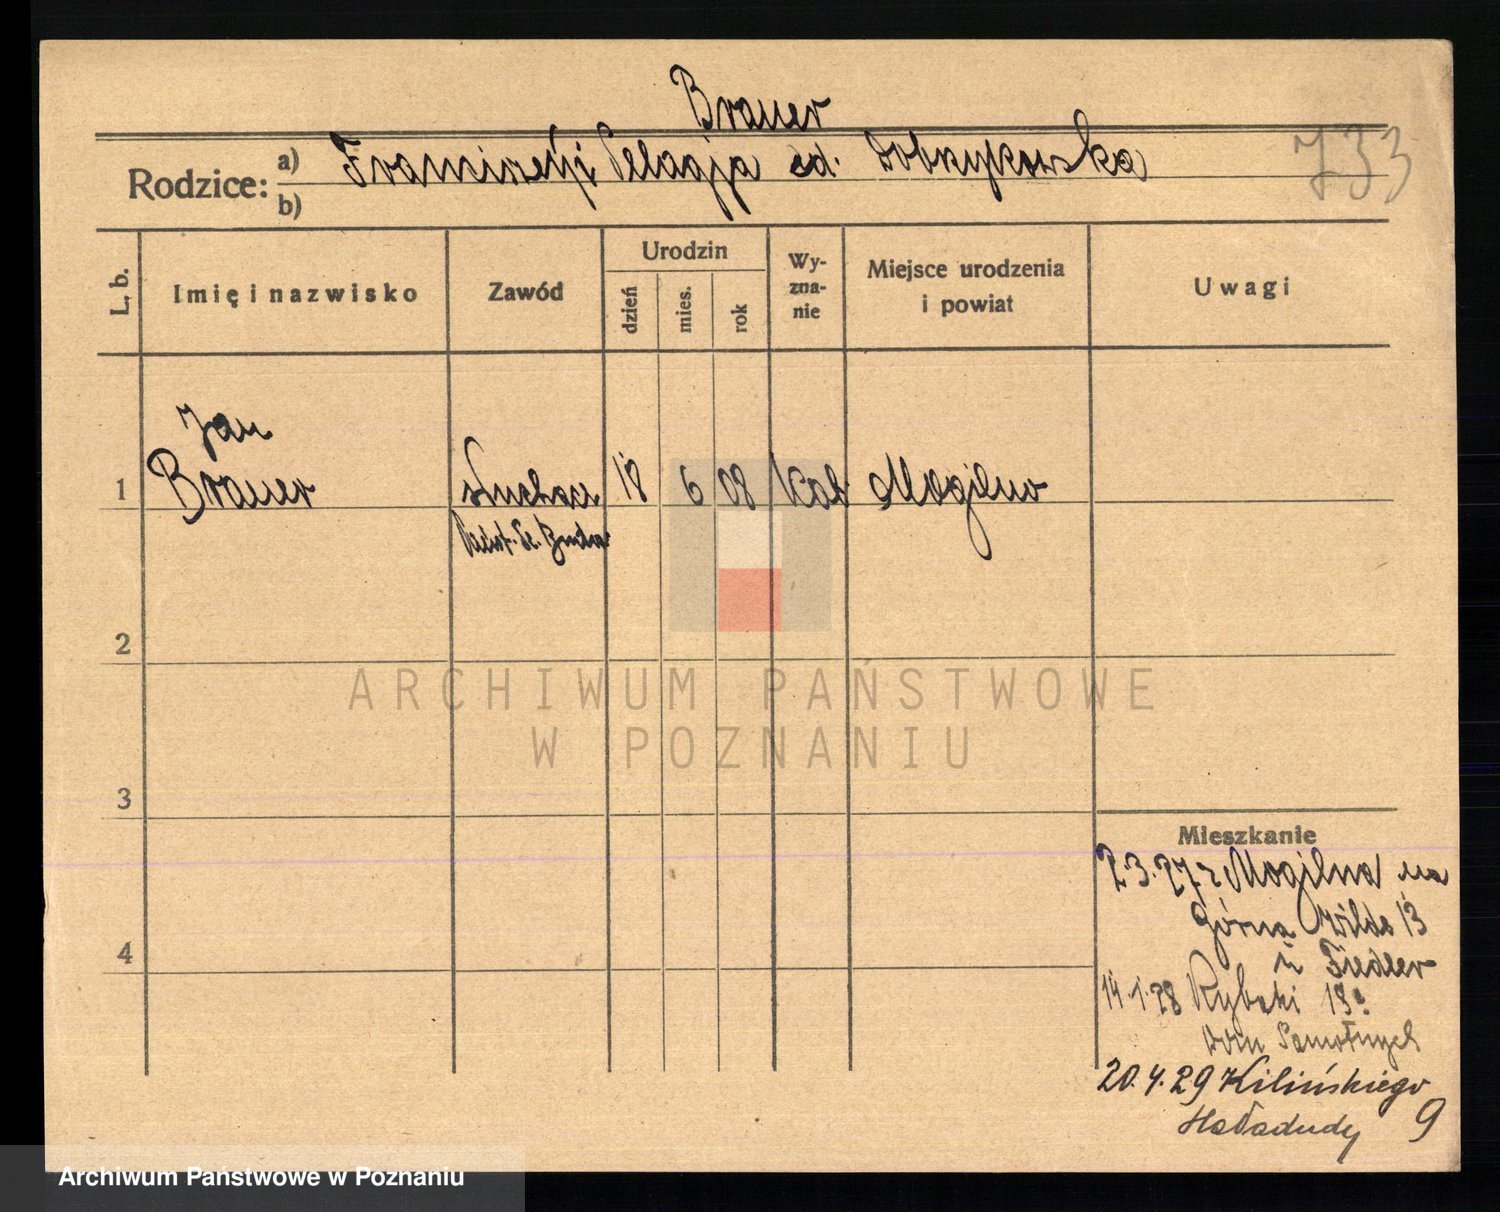 Brauer
Rodzice: a) Franciszek i Pelagja cd. Dobrzykowska
b)
733
L. b.
Imię i nazwisko
Zawód
Urodzin
dzień
mies.
rok
Wy-
zna-
nie
Miejsce urodzenia
i powiat
Uwagi
Jan
1 Brauer słuchacz 18 6 08 Kat Mogilno
2
3
4
Mieszkanie
2.3.27 z Mogilna na
Górna Wilda 13
u Fiedler
14.1.28 Rybaki 18a
Dom Samotnych
20.4.29 Kilińskiego
Haładudy 9
ARCHIWUM PAŃSTWOWE
W POZNANIU
Archiwum Państwowe w Poznaniu